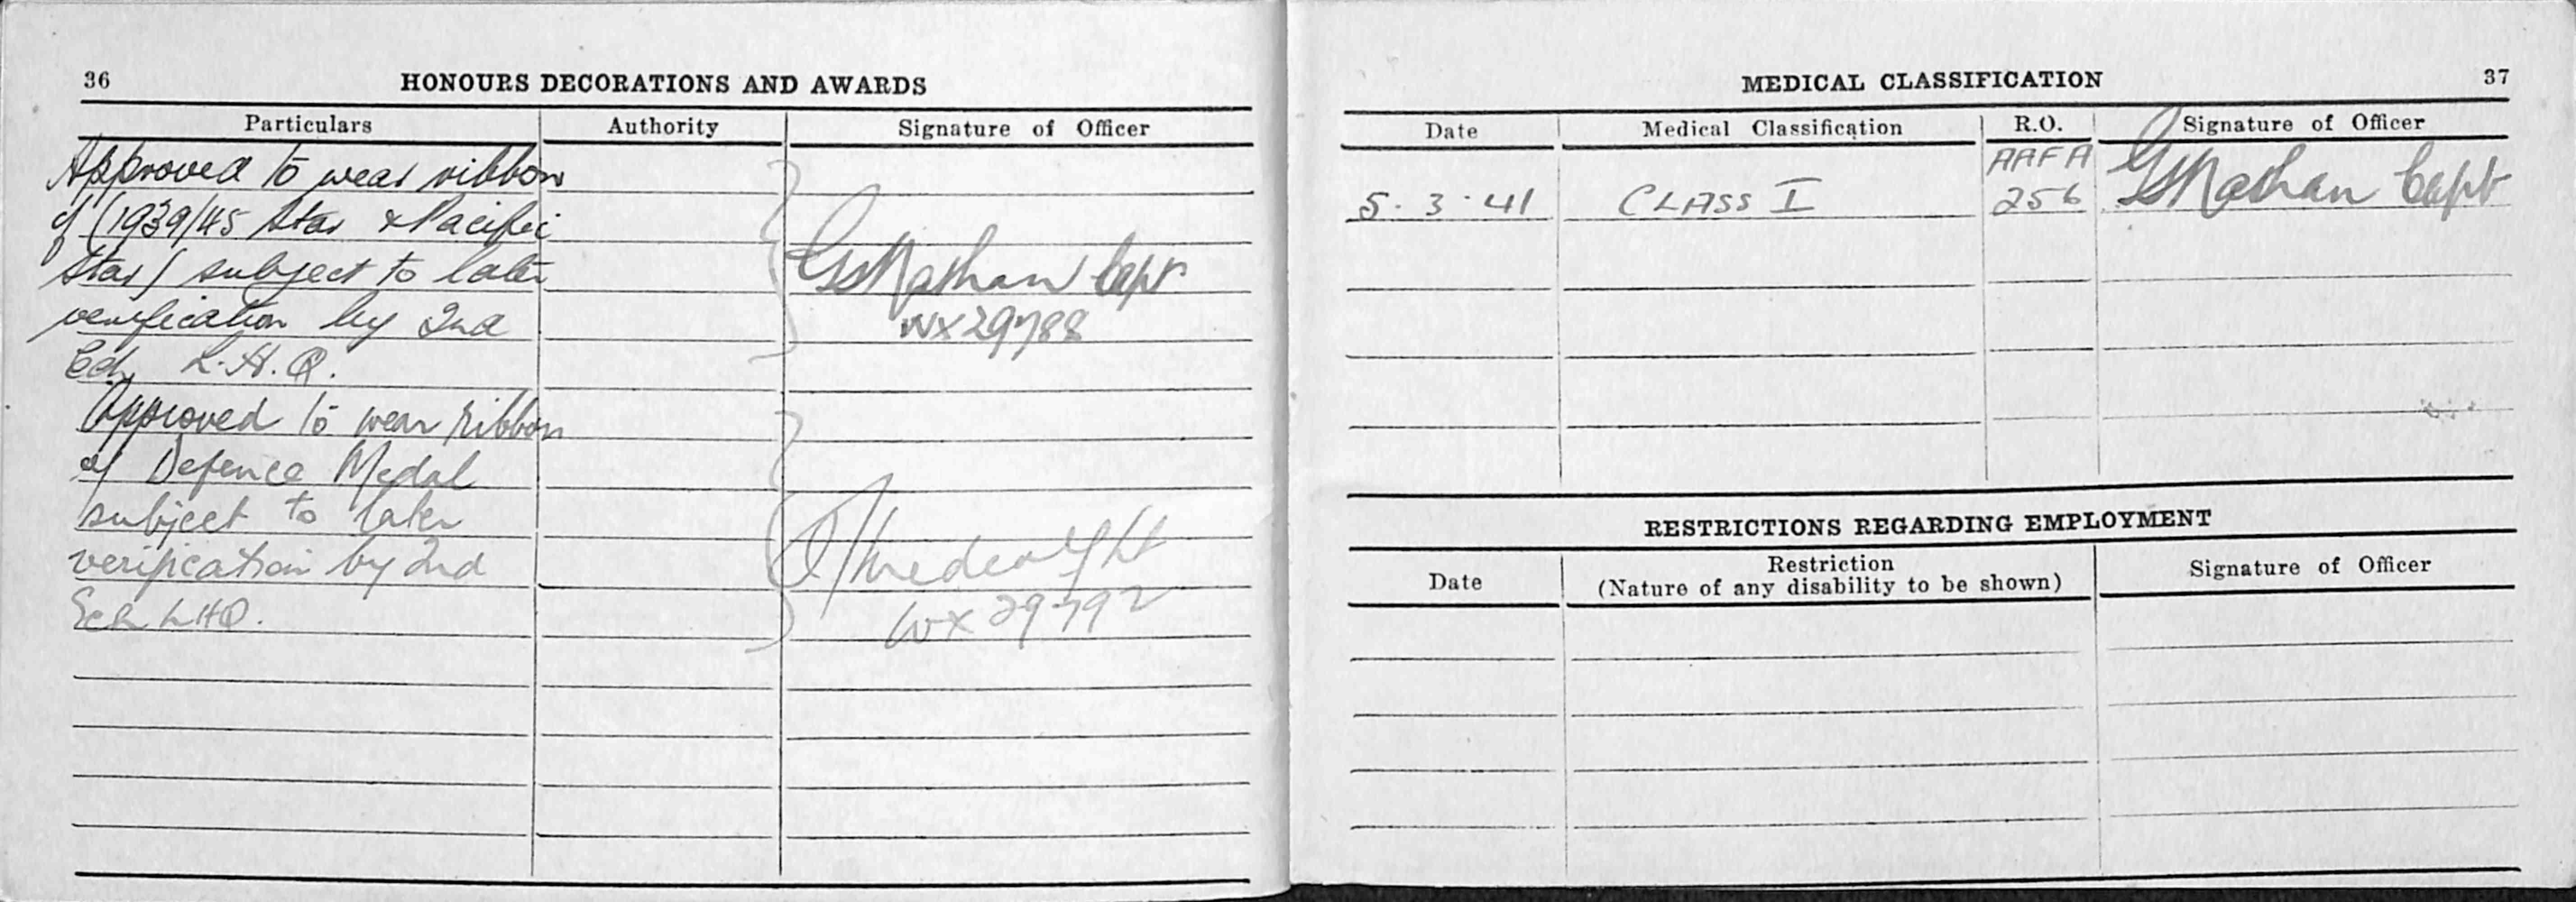 36
HONOURS DECORATIONS AND AWARDS
Particulars
Authority
Signature of Officer
Approved to wear ribbon
of (1939/45 Star & Pacific
Star) subject to later
verification by 2nd
Ech L.H.Q.
GSNathan Capt
WX29788
Approved to wear ribbon
of Defence Medal
subject to later
verification by 2nd
Ech LHQ.
Lt
WX29792
37
MEDICAL CLASSIFICATION
Date
Medical Classification
R.O.
Signature of Officer
5.3.41
CLASS I
AAFA
256
GSNathan Capt
RESTRICTIONS REGARDING EMPLOYMENT
Date
Restriction
(Nature of any disability to be shown)
Signature of Officer